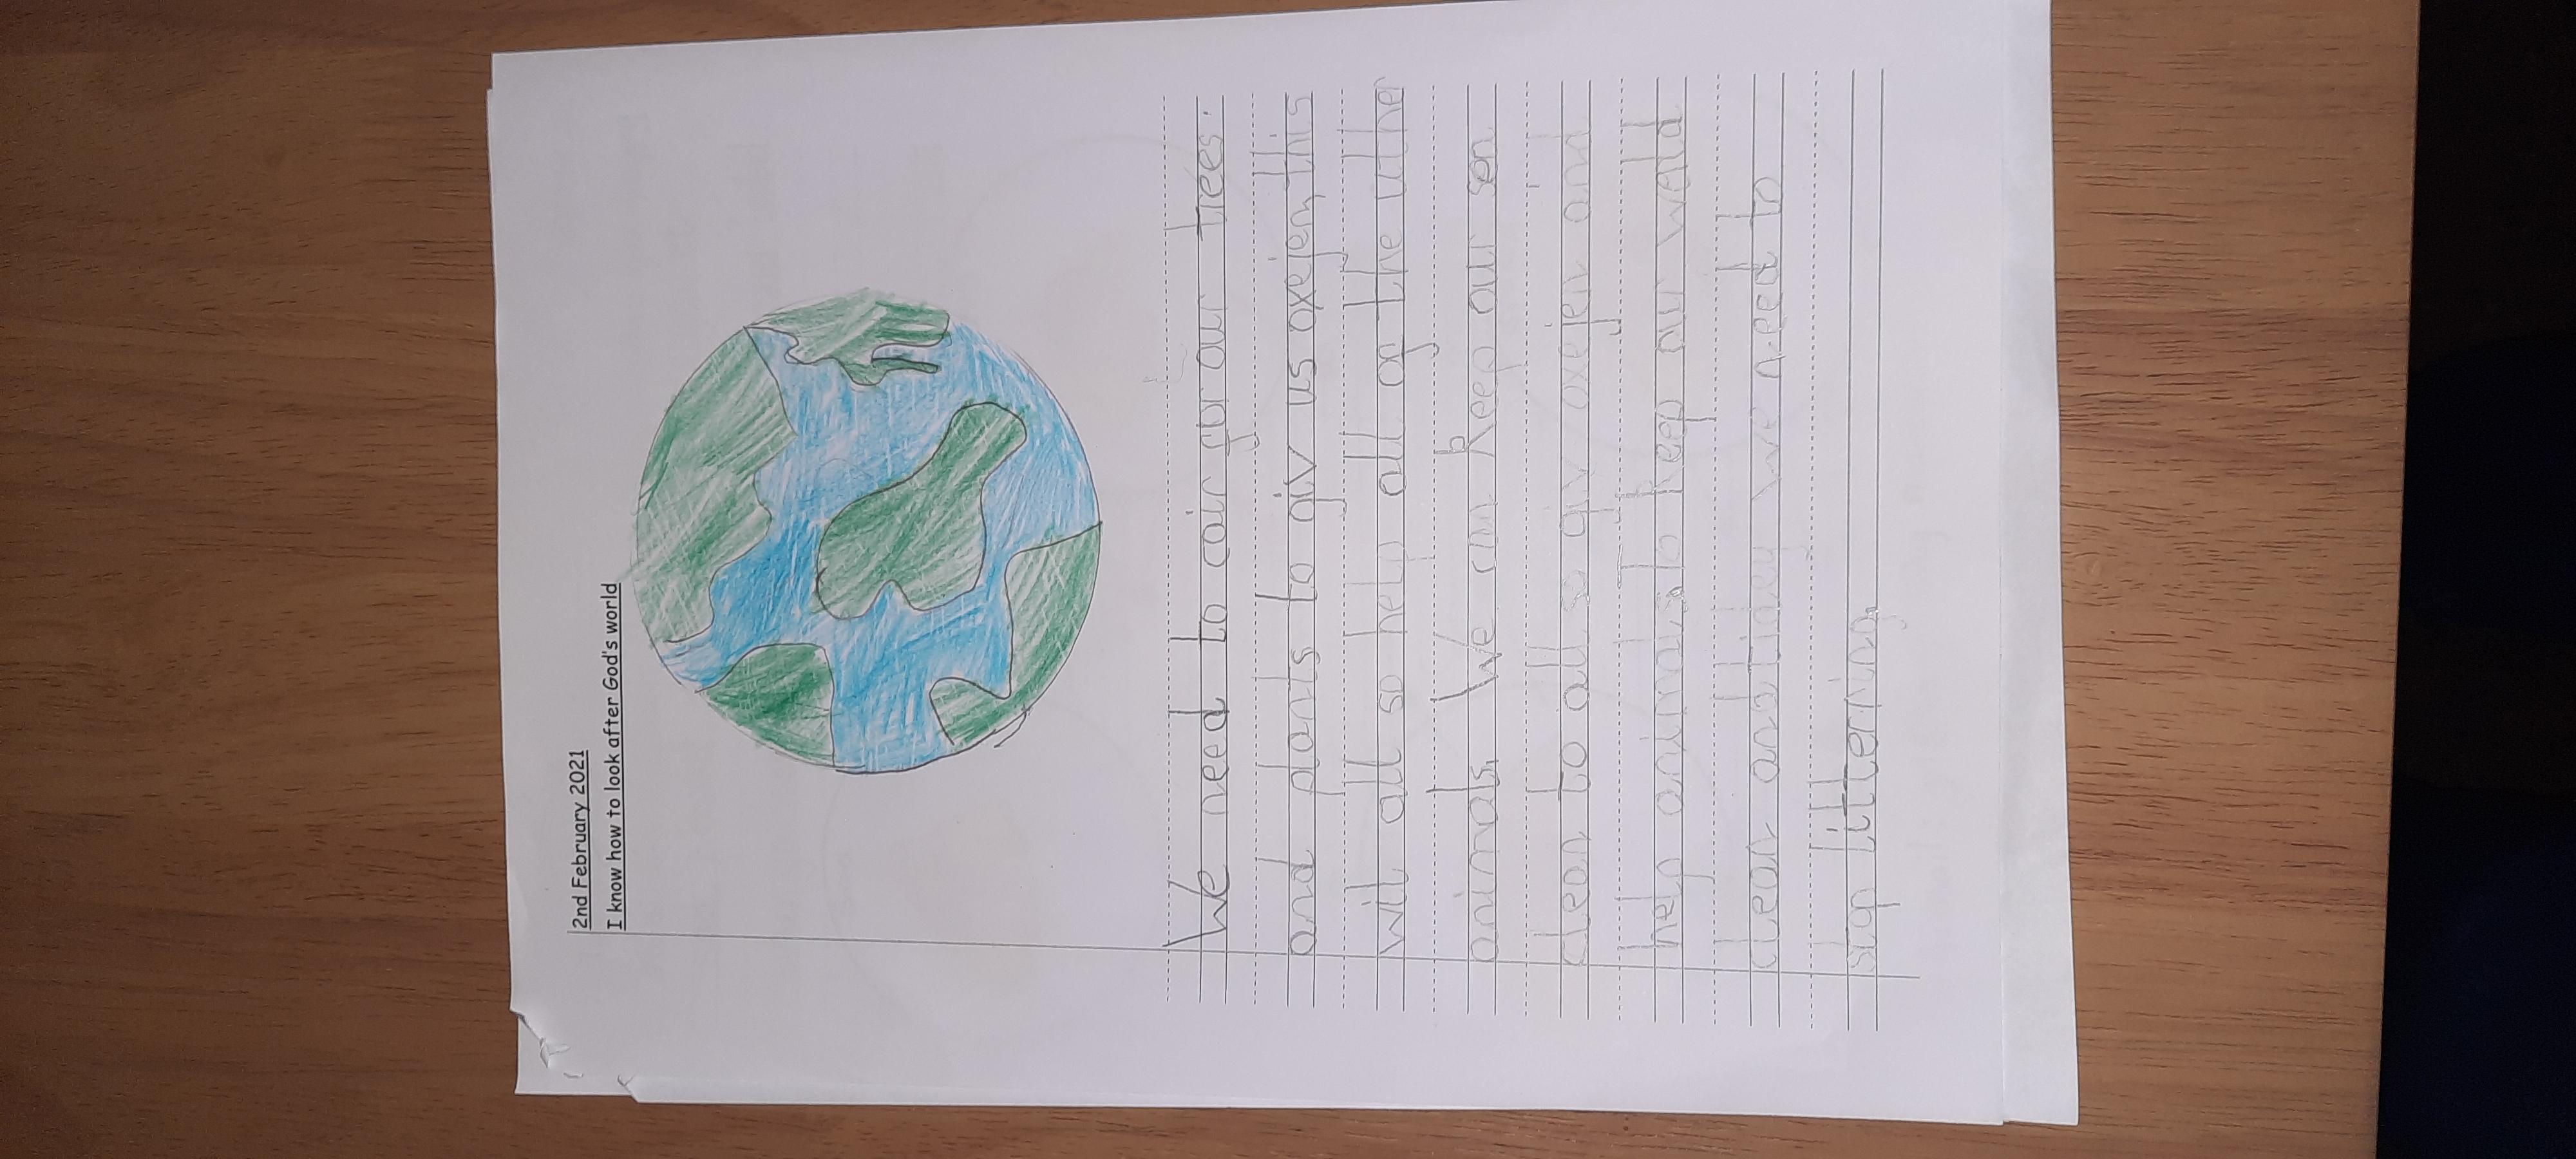 2nd February 2021
I know how to look after God's world
We need to cair for our trees.
and plants to giv us oxejen, this
will all so help all of the uther
animals. We can keep our sen
clean to all so giv oxejen and
help animals. To keep our weld
clean and tidey we need to
stop littering.